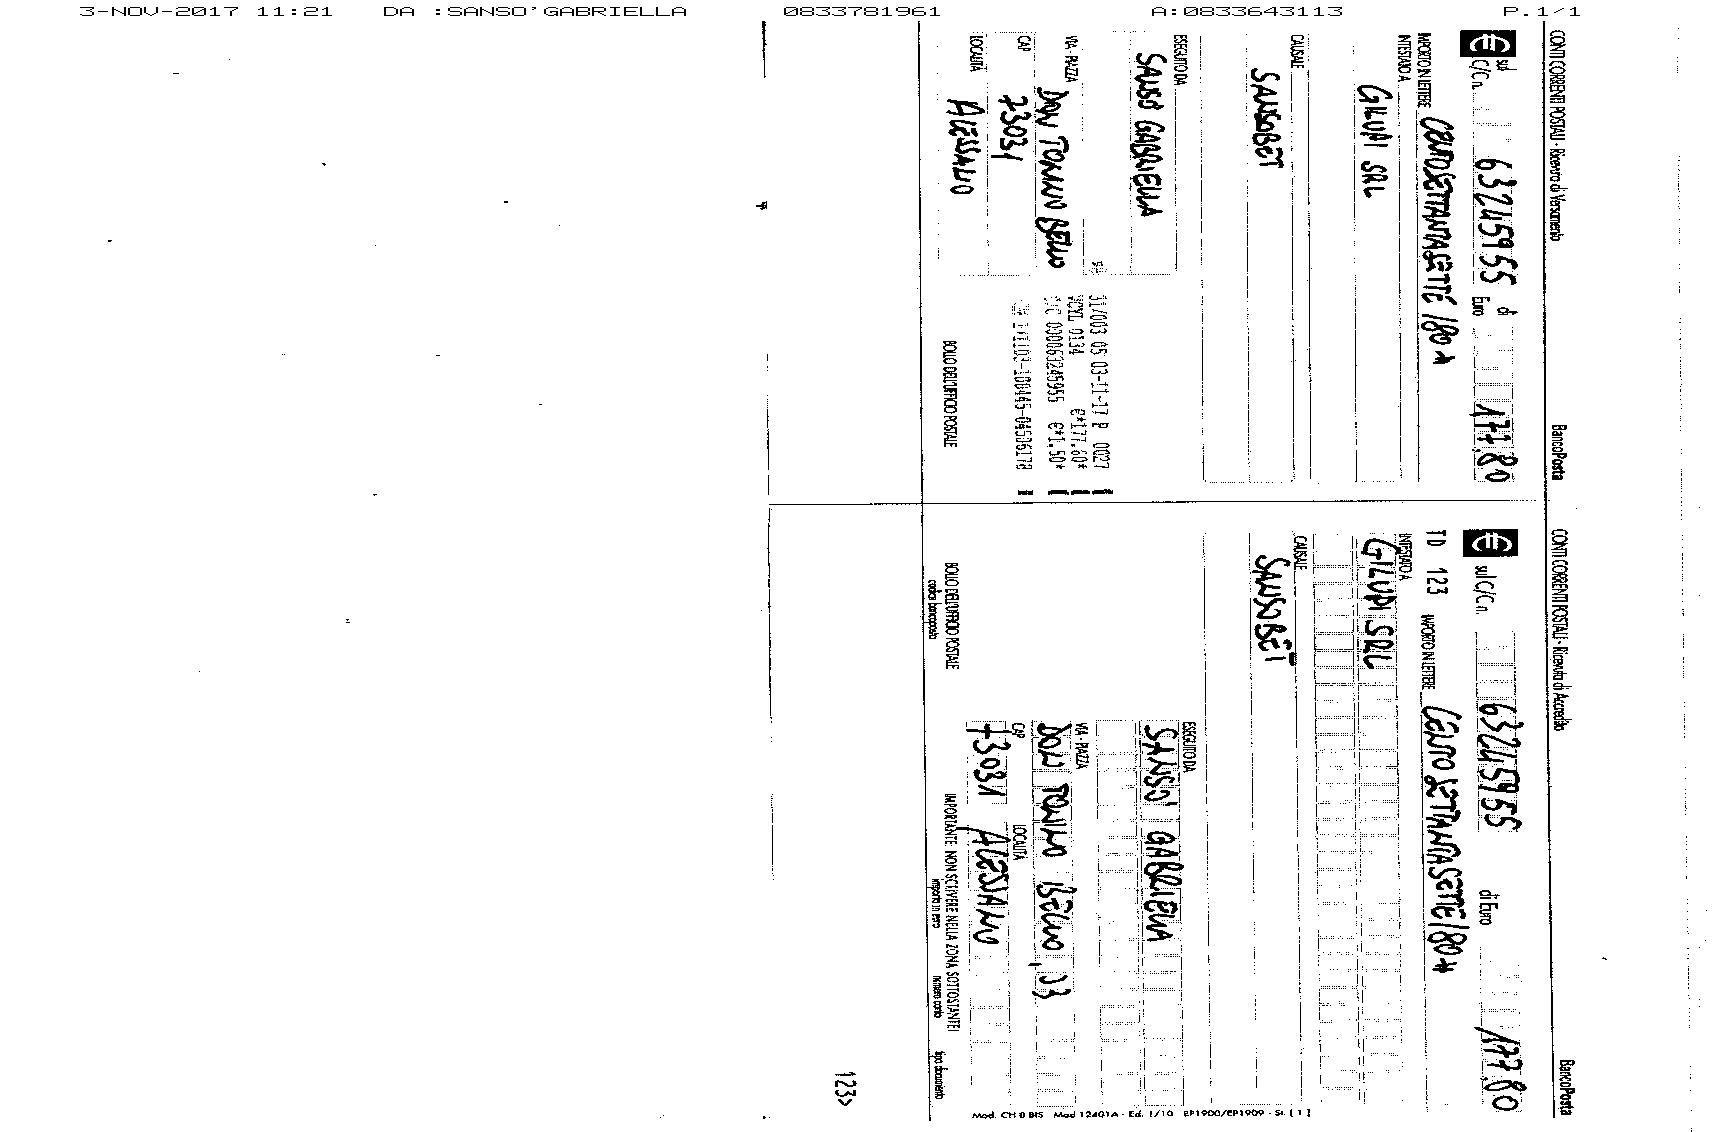 3-NOV-2017 11:21 DA :SANSO'GABRIELLA 0833781961 A:0833643113 P.1/1
CONTI CORRENTI POSTALI - Ricevuta di Versamento BancoPosta
sul C/C n. 63245955 di Euro 177,80
IMPORTO IN LETTERE CENTOSETTANTASETTE/80*
INTESTATO A
GILUPI SRL
CAUSALE
SANSOBET
ESEGUITO DA
SANSO GABRIELLA
VIA - PIAZZA
DON TONINO BELLO
CAP
73031
LOCALITÀ
ALESSANO
31/003 05 03-11-17 P 0027
VCYL 0134 €*177,80*
C/C 000063245955 €*1,50*
BOLLO DELL'UFFICIO POSTALE
CONTI CORRENTI POSTALI - Ricevuta di Accredito BancoPosta
sul C/C n. 63245955 di Euro 177,80
TD 123 IMPORTO IN LETTERE CENTOSETTANTASETTE/80*
INTESTATO A
GILUPI SRL
CAUSALE
SANSOBET
ESEGUITO DA
SANSO' GABRIELLA
VIA - PIAZZA
DON TONINO BELLO, 33
CAP LOCALITÀ
73031 ALESSANO
BOLLO DELL'UFFICIO POSTALE
codice bancoposta
IMPORTANTE: NON SCRIVERE NELLA ZONA SOTTOSTANTE!
importo in euro numero conto tipo documento
123>
Mod. CH 8 BIS Mod 12401A - Ed. 1/10 EP1900/EP1909 - St. [ 1 ]